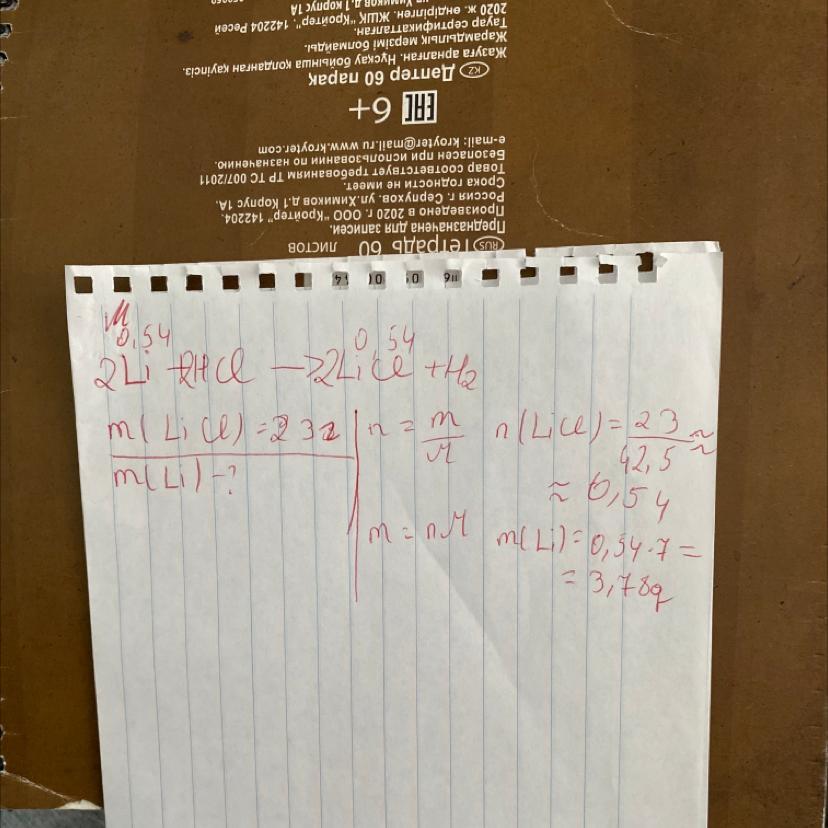 250959
ул. Химиков д.1 корпус 1А
2020 ж. өндірілген. ЖШҚ "Кройтер". 142204 Ресей
Тауар сертификатталған.
Жарамдылық мерзімі болмайды.
Жазуға арналған. Нұсқау бойынша қолданған қауіпсіз.
KZ Дәптер 60 парақ
EAC 6+
e-mail: kroyter@mail.ru www.kroyter.com
Безопасен при использовании по назначению.
Товар соответствует требованиям ТР ТС 007/2011
Срока годности не имеет.
Россия г. Серпухов. ул.Химиков д.1 Корпус 1А.
Произведено в 2020 г. ООО "Кройтер" 142204.
Предназначена для записей.
RUS Тетрадь 60 листов
M
0,54 0,54
2Li + 2HCl → 2LiCl + H2
m(LiCl) = 23г
m(Li) - ?
n = m/M
m = nM
n(LiCl) = 23/42,5 ≈
≈ 0,54
m(Li) = 0,54·7 =
= 3,78g